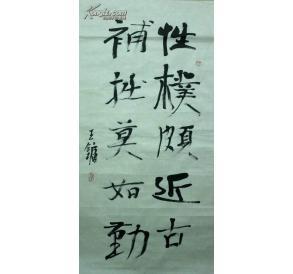 性樸頗近古
補拙莫如勤
王鏞